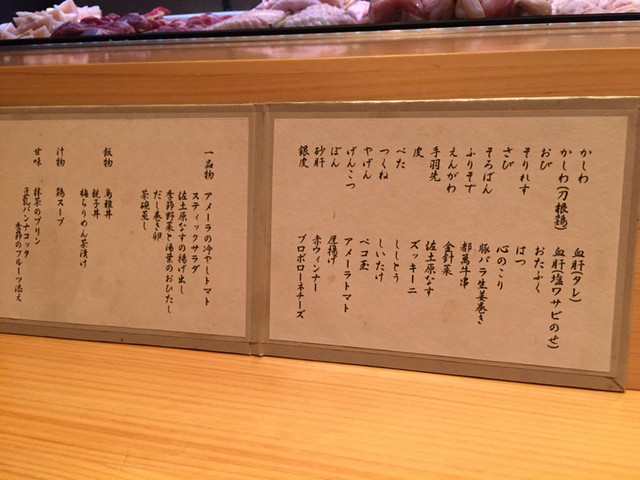 かしわ
かしわ(刀根鶏)
おび
そりれす
さび
そろばん
ふりそで
えんがわ
手羽先
皮
ぺた
つくね
やげん
げんこつ
ぼん
砂肝
銀皮
血肝(タレ)
血肝(塩ワサビのせ)
おたふく
はつ
心のこり
豚バラ生姜巻き
都萬牛串
金針菜
佐土原なす
ズッキーニ
ししとう
しいたけ
ペコ玉
アメーラトマト
厚揚げ
赤ウィンナー
プロボローネチーズ
一品物
アメーラの冷やしトマト
スティックサラダ
佐土原なすの揚げ出し
季節野菜と湯葉のおひたし
だし巻き卵
茶碗蒸し
飯物
烏雞丼
親子丼
梅ちりめん茶漬け
汁物
鶏スープ
甘味
抹茶のプリン
豆乳パンナコッタ
季節のフルーツ添え